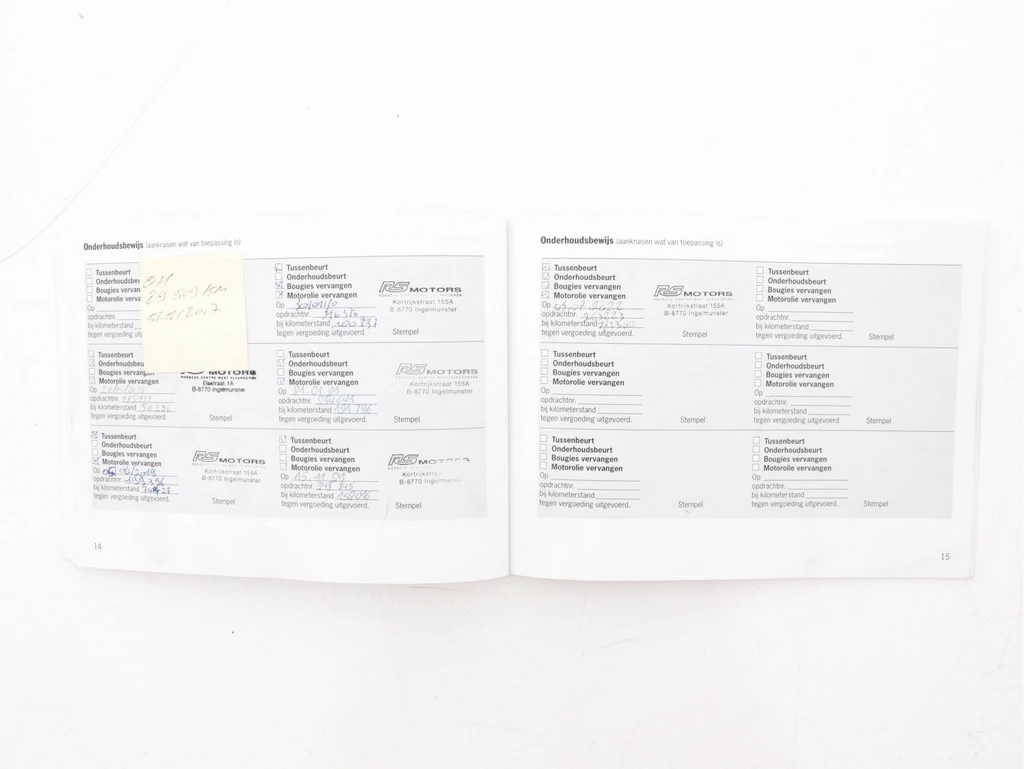 Onderhoudsbewijs (aankruisen wat van toepassing is)
Tussenbeurt
Onderhoudsbeu
Bougies verван
Motorolie verva
Op
opdrachtnr.
bij kilometerstand
tegen vergoeding uitgevoerd.
29 509 KM
5/12/2017
Tussenbeurt
Onderhoudsbeu
Bougies vervan
Motorolie vervangen
Op
opdrachtnr.
bij kilometerstand
tegen vergoeding uitgevoerd.
MOTORS
PORSCHE CENTRE WEST-VLAANDEREN
Elsstraat 1A
B-8770 Ingelmunster
Stempel
Tussenbeurt
Onderhoudsbeurt
Bougies vervangen
Motorolie vervangen
Op
opdrachtnr.
bij kilometerstand
tegen vergoeding uitgevoerd.
RS MOTORS
Kortrijkstraat 155A
B-8770 Ingelmunster
Stempel
Tussenbeurt
Onderhoudsbeurt
Bougies vervangen
Motorolie vervangen
Op
opdrachtnr.
bij kilometerstand
tegen vergoeding uitgevoerd.
RS MOTORS
Kortrijkstraat 155A
B-8770 Ingelmunster
Stempel
Tussenbeurt
Onderhoudsbeurt
Bougies vervangen
Motorolie vervangen
Op
opdrachtnr.
bij kilometerstand 121 796
tegen vergoeding uitgevoerd.
RS MOTORS
Kortrijkstraat 155A
B-8770 Ingelmunster
Stempel
Tussenbeurt
Onderhoudsbeurt
Bougies vervangen
Motorolie vervangen
Op
opdrachtnr.
bij kilometerstand
tegen vergoeding uitgevoerd.
RS
Kortrijkstra
B-8770 Ingelmun
Stempel
14
Onderhoudsbewijs (aankruisen wat van toepassing is)
Tussenbeurt
Onderhoudsbeurt
Bougies vervangen
Motorolie vervangen
Op
opdrachtnr.
bij kilometerstand
tegen vergoeding uitgevoerd.
RS MOTORS
Kortrijkstraat 155A
B-8770 Ingelmunster
Stempel
Tussenbeurt
Onderhoudsbeurt
Bougies vervangen
Motorolie vervangen
Op
opdrachtnr.
bij kilometerstand
tegen vergoeding uitgevoerd.
Stempel
Tussenbeurt
Onderhoudsbeurt
Bougies vervangen
Motorolie vervangen
Op
opdrachtnr.
bij kilometerstand
tegen vergoeding uitgevoerd.
Stempel
Tussenbeurt
Onderhoudsbeurt
Bougies vervangen
Motorolie vervangen
Op
opdrachtnr.
bij kilometerstand
tegen vergoeding uitgevoerd.
Stempel
Tussenbeurt
Onderhoudsbeurt
Bougies vervangen
Motorolie vervangen
Op
opdrachtnr.
bij kilometerstand
tegen vergoeding uitgevoerd.
Stempel
Tussenbeurt
Onderhoudsbeurt
Bougies vervangen
Motorolie vervangen
Op
opdrachtnr.
bij kilometerstand
tegen vergoeding uitgevoerd.
Stempel
15